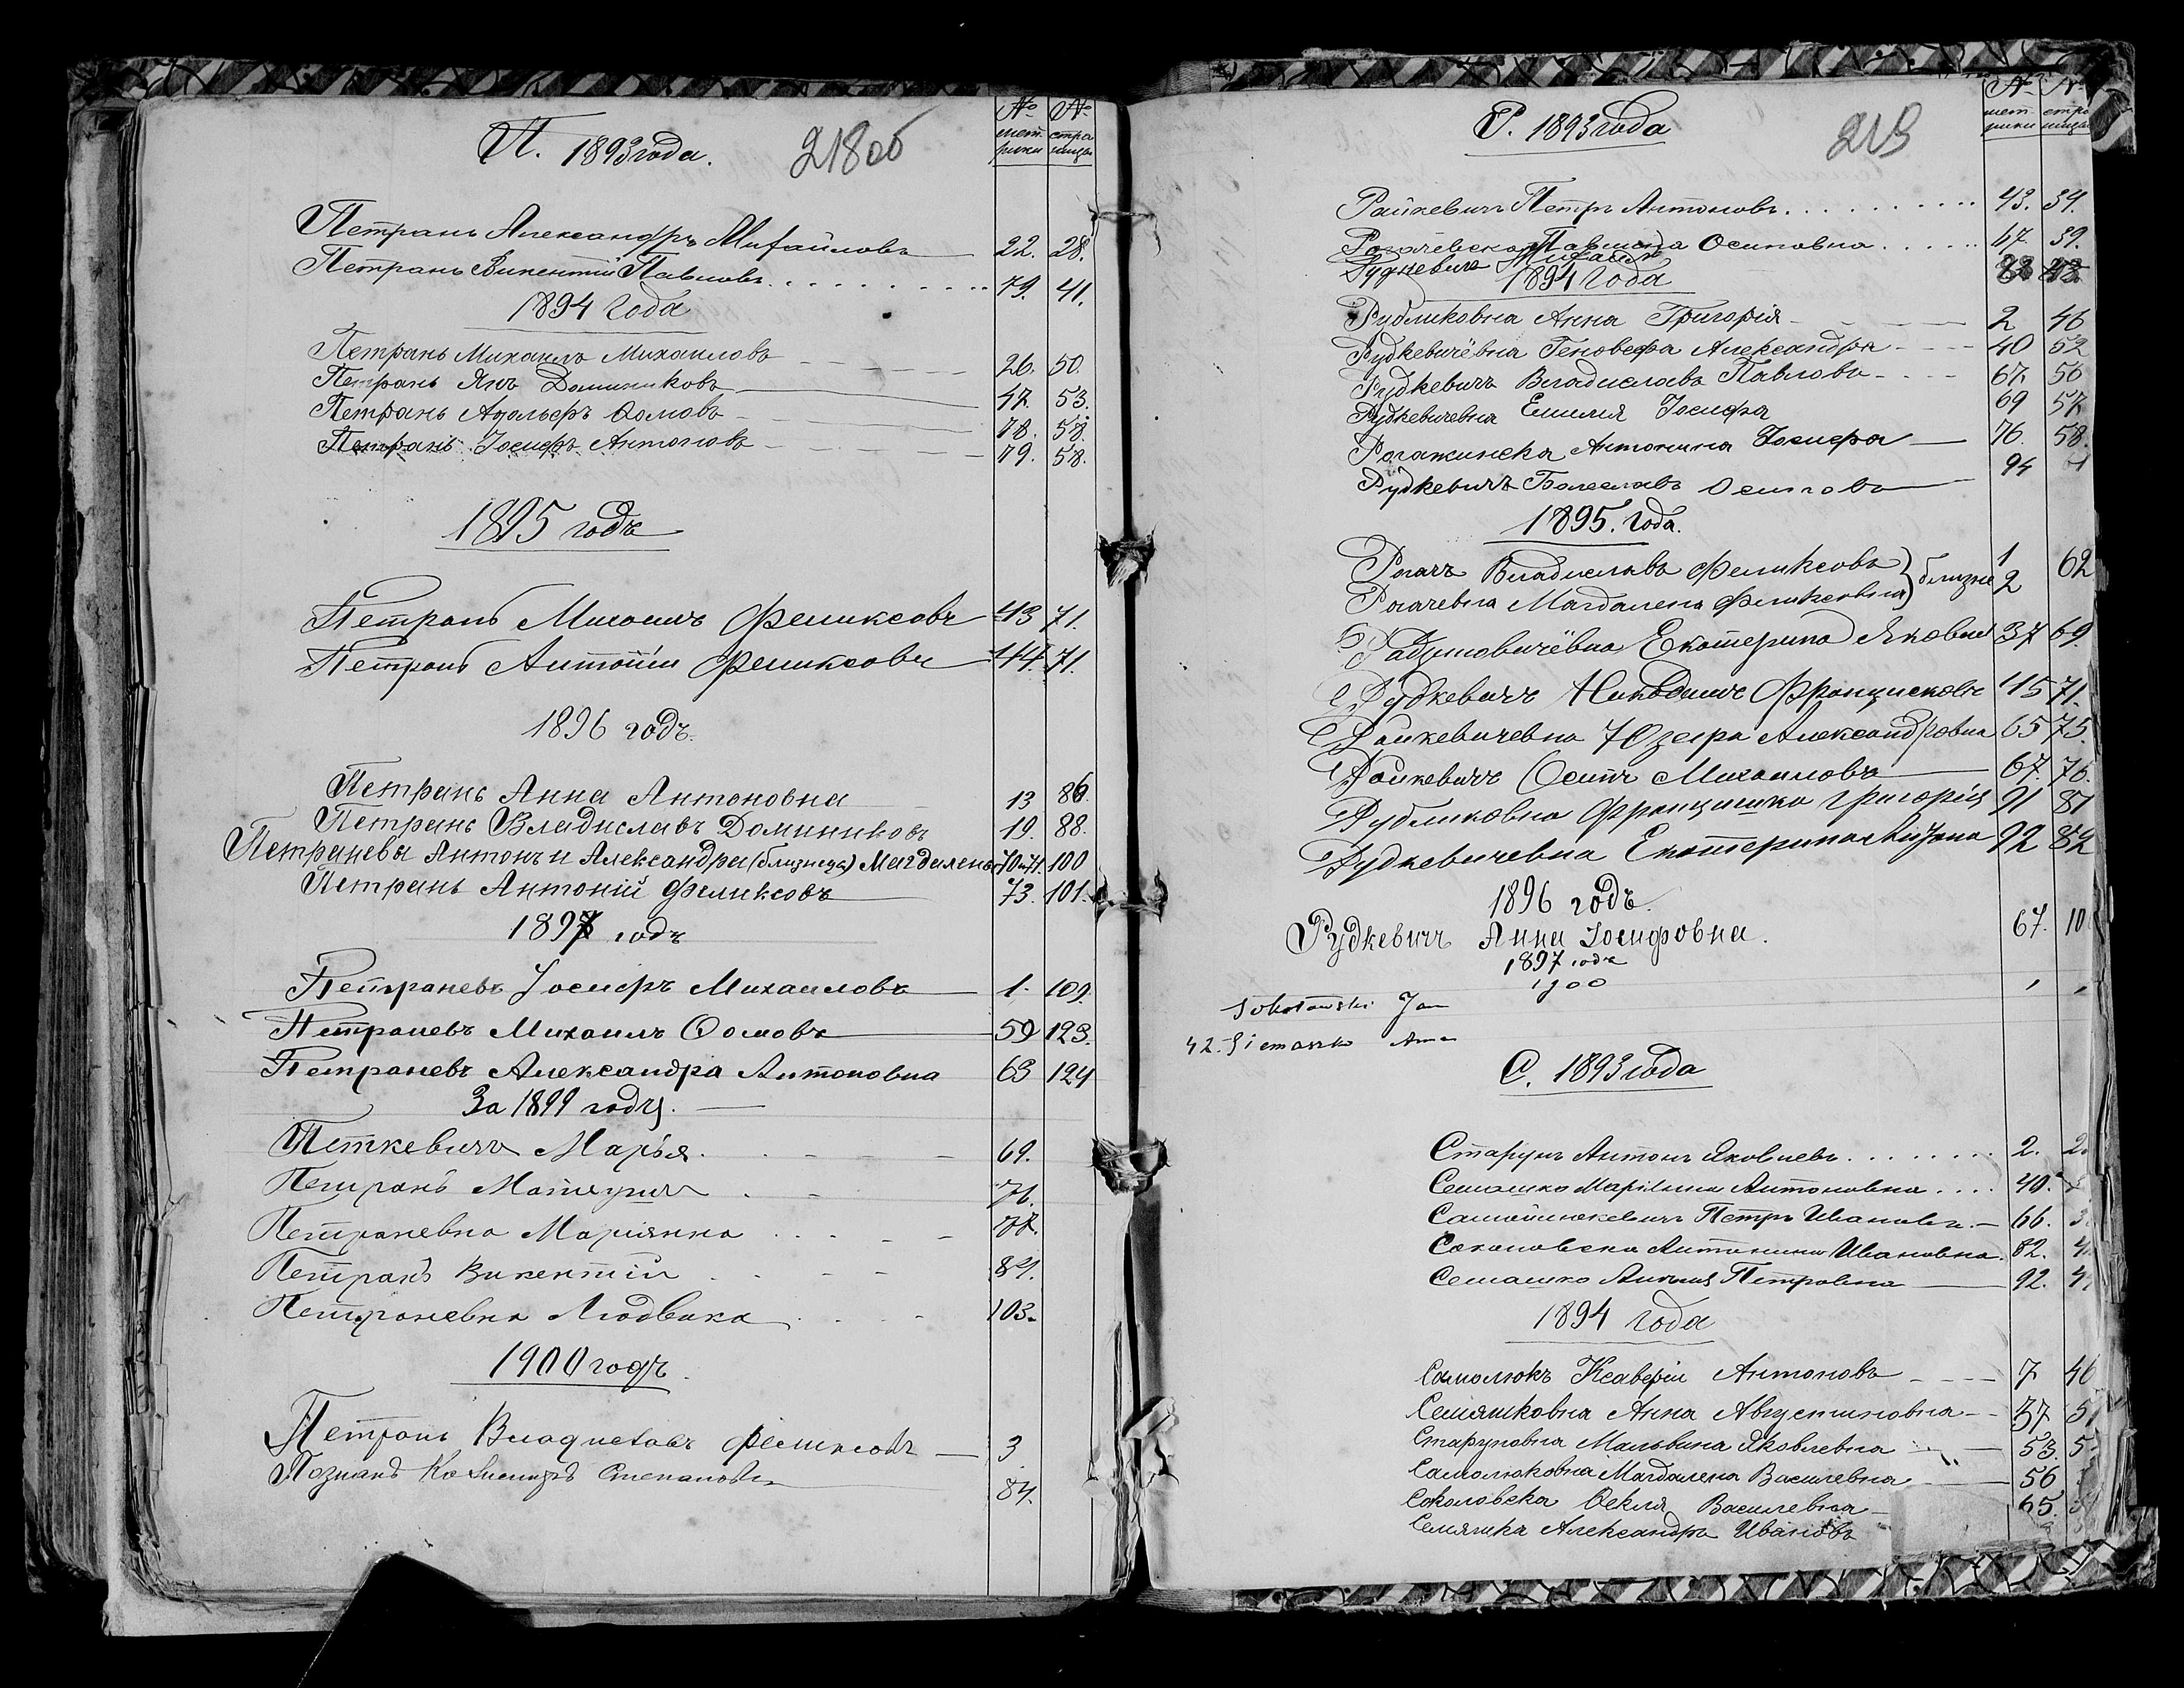 П. 1893 года.
218 об
№ метрики
№ страницы
Петрань Александръ Михайловъ 22. 28.
Петрань Викентій Павловъ 79. 41.
1894 года
Петрань Михаилъ Михаиловъ 26. 50.
Петрань Янъ Доминиковъ 47. 53.
Петрань Адольфъ Ѳомовъ 78. 58.
Петрань Іосифъ Антоновъ 79. 58.
1895 годъ
Петрань Михаилъ Феликсовъ 43 71.
Петрань Антоній Феликсовъ 44. 71.
1896 годъ.
Петрань Анна Антоновна 13 86.
Петрань Владиславъ Доминиковъ 19. 88.
Петраневы Антонъ и Александра (близнецы) Магдалены 70 и 71. 100
Петрань Антоній Феликсовъ 73. 101.
1897 годъ
Петраневъ Іосифъ Михаиловъ 1. 109.
Петраневъ Михаилъ Ѳомовъ 59 123.
Петраневъ Александра Антоновна 63 124
За 1899 годъ.
Петкевичъ Марья 69.
Петрань 76.
Петраневна Маріянна 77.
Петрань Викентій 84.
Петраневна Людвика 103.
1900 годъ.
Петрань Владиславъ Феликсовъ 3
Познанъ Казимиръ Степановъ 84.
Р. 1893 года
219
№ метрики
№ страница
Райкевичъ Петръ Антоновъ 43. 34.
Осиповна 67. 39.
Рудкевичъ Михаилъ
1894 года
Рубликовна Анна Григорія 2 46
Рудкевичёвна Геновефа Александра 40 52
Рудкевичъ Владиславъ Павловъ 67. 56
Рудкевичевна Емилія Іосифа 69 57
Рогажинска Антонина Іосифа 76. 58.
Рудкевичъ Болеславъ Осиповъ 94
1895. года.
Рогачъ Владиславъ Феликсовъ 1 62
Рогачевна Магдалена Феликсовна близне 2
Радзиловичёвна Екатерина Яковл 37 69.
Рудкевичъ Никодимъ Францисковъ 45 71.
Райкевичевна Юзефа Александровна 65 75.
Райкевичъ Осипъ Михаиловъ 67. 76.
Рубликовна Францишка Григорія 91 81
Рудкевичевна Екатерина 92 82
1896 годъ.
Рудкевичъ Анна Іосифовна. 67. 10
1897 годъ
1900
Sokołowski Jan
42. Siemaszko
С. 1893 года
Старунъ Антонъ Яковлевъ 2. 2
Семашко Маріянна Антоновна 40.
Самойлюкевичъ Петръ Ивановъ 66. 3
Соколовска Антонина Ивановна. 82. 4
Семашко Анелія Петровна 92. 4
1894 года
Самолюкъ Ксаверій Антоновъ 7 46
Семяшковна Анна Августиновна 37 5
Старуновна Мальвина Яковлевна 53. 5
Самолюковна Магдалена Василевна 56
Соколовска Ѳекля Василевна 65.
Семяшка Александръ Ивановъ